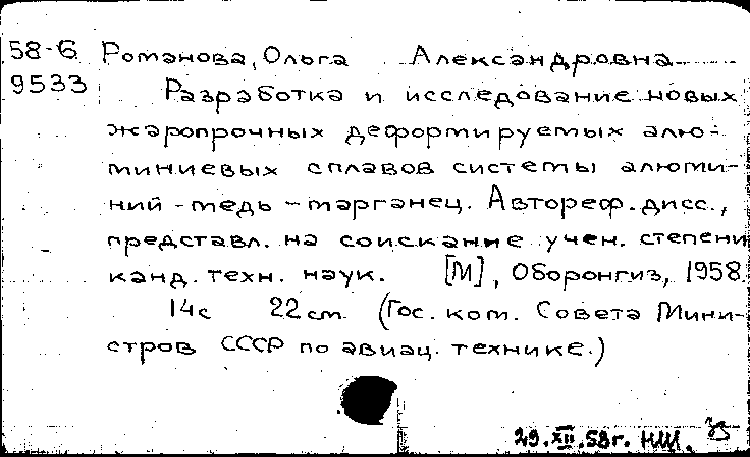 58-6 Романова, Ольга Александровна
9533 Разработка и исследование новых
жаропрочных деформируемых алю-
миниевых сплавов системы алюми-
ний - медь - марганец. Автореф. дисс.,
представл. на соискание учен. степени
канд. техн. наук. [М], Оборонгиз, 1958.
14с 22 см. (Гос. ком. Совета Мини-
стров СССР по авиац. технике.)
29.XII.58г. НШ.